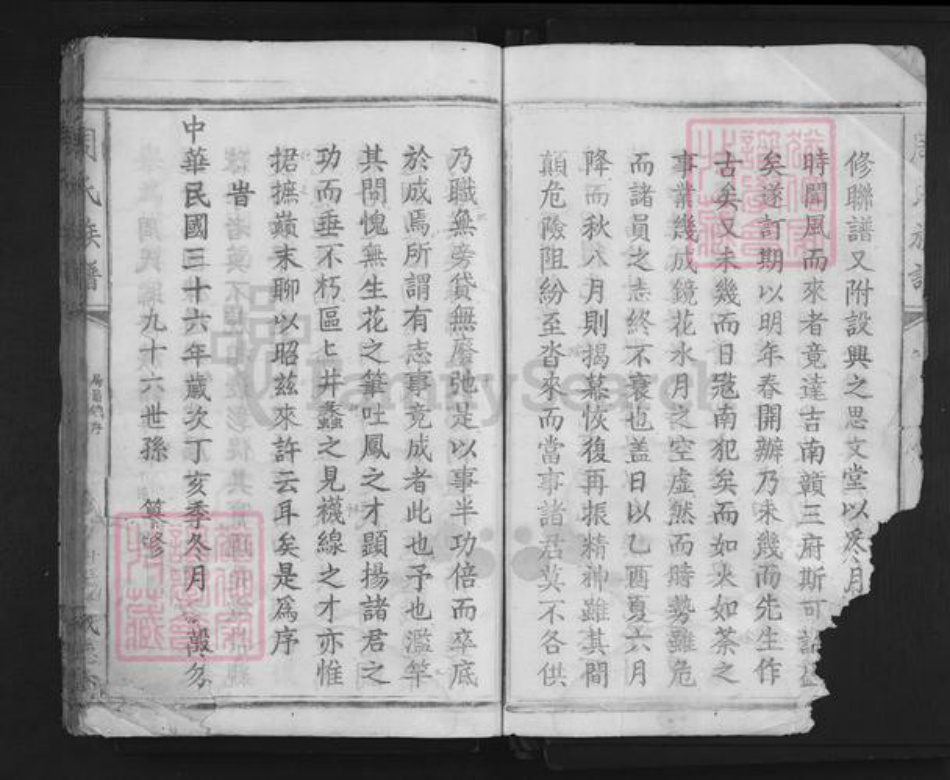 修聯譜又附設興之思文堂以冬月
時聞風而來者竟達吉南贛三府斯可
矣遂訂期以明年春開辦乃未幾而先生作
古矣又未幾而日宼南犯矣而如火如荼之
事業幾成鏡花水月之空虛然而時勢雖危
而諸員之志終不衰也盖日以乙酉夏六月
降而秋八月則揭幕恢復再振精神雖其間
顛危險阻紛至沓來而當事諸君莫不各供
乃職無旁貸無廢弛是以事半功倍而卒底
於成焉所謂有志事竟成者此也予也濫竽
其間愧無生花之筆吐鳳之才顯揚諸君之
功而垂不朽區匕井蠡之見襪線之才亦惟
捃摭巔末聊以昭兹來許云耳矣是爲序
旹
中華民國三十六年歲次丁亥季冬月 穀
九十六世孫 纂修
周氏族譜
FamilySearch